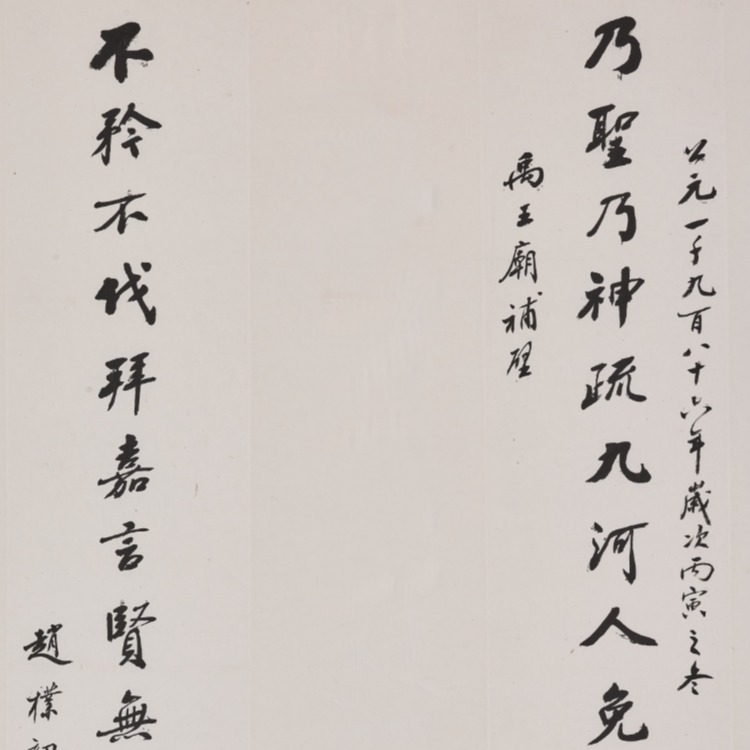 公元一千九百八十六年歲次丙寅之冬
乃聖乃神疏九河人免
禹王廟補壁
不矜不伐拜嘉言賢無
趙樸初